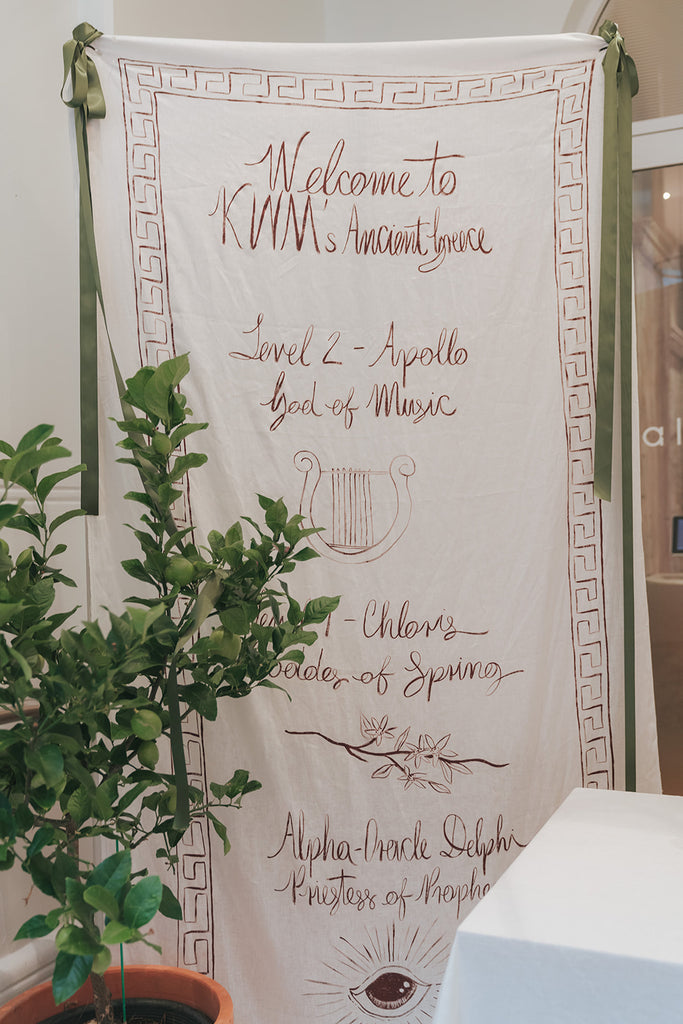 Welcome to
KWM's Ancient Greece
Level 2 - Apollo
God of Music
1 - Chloris
of Spring
Alpha-Oracle Delphi
Priestess of
al